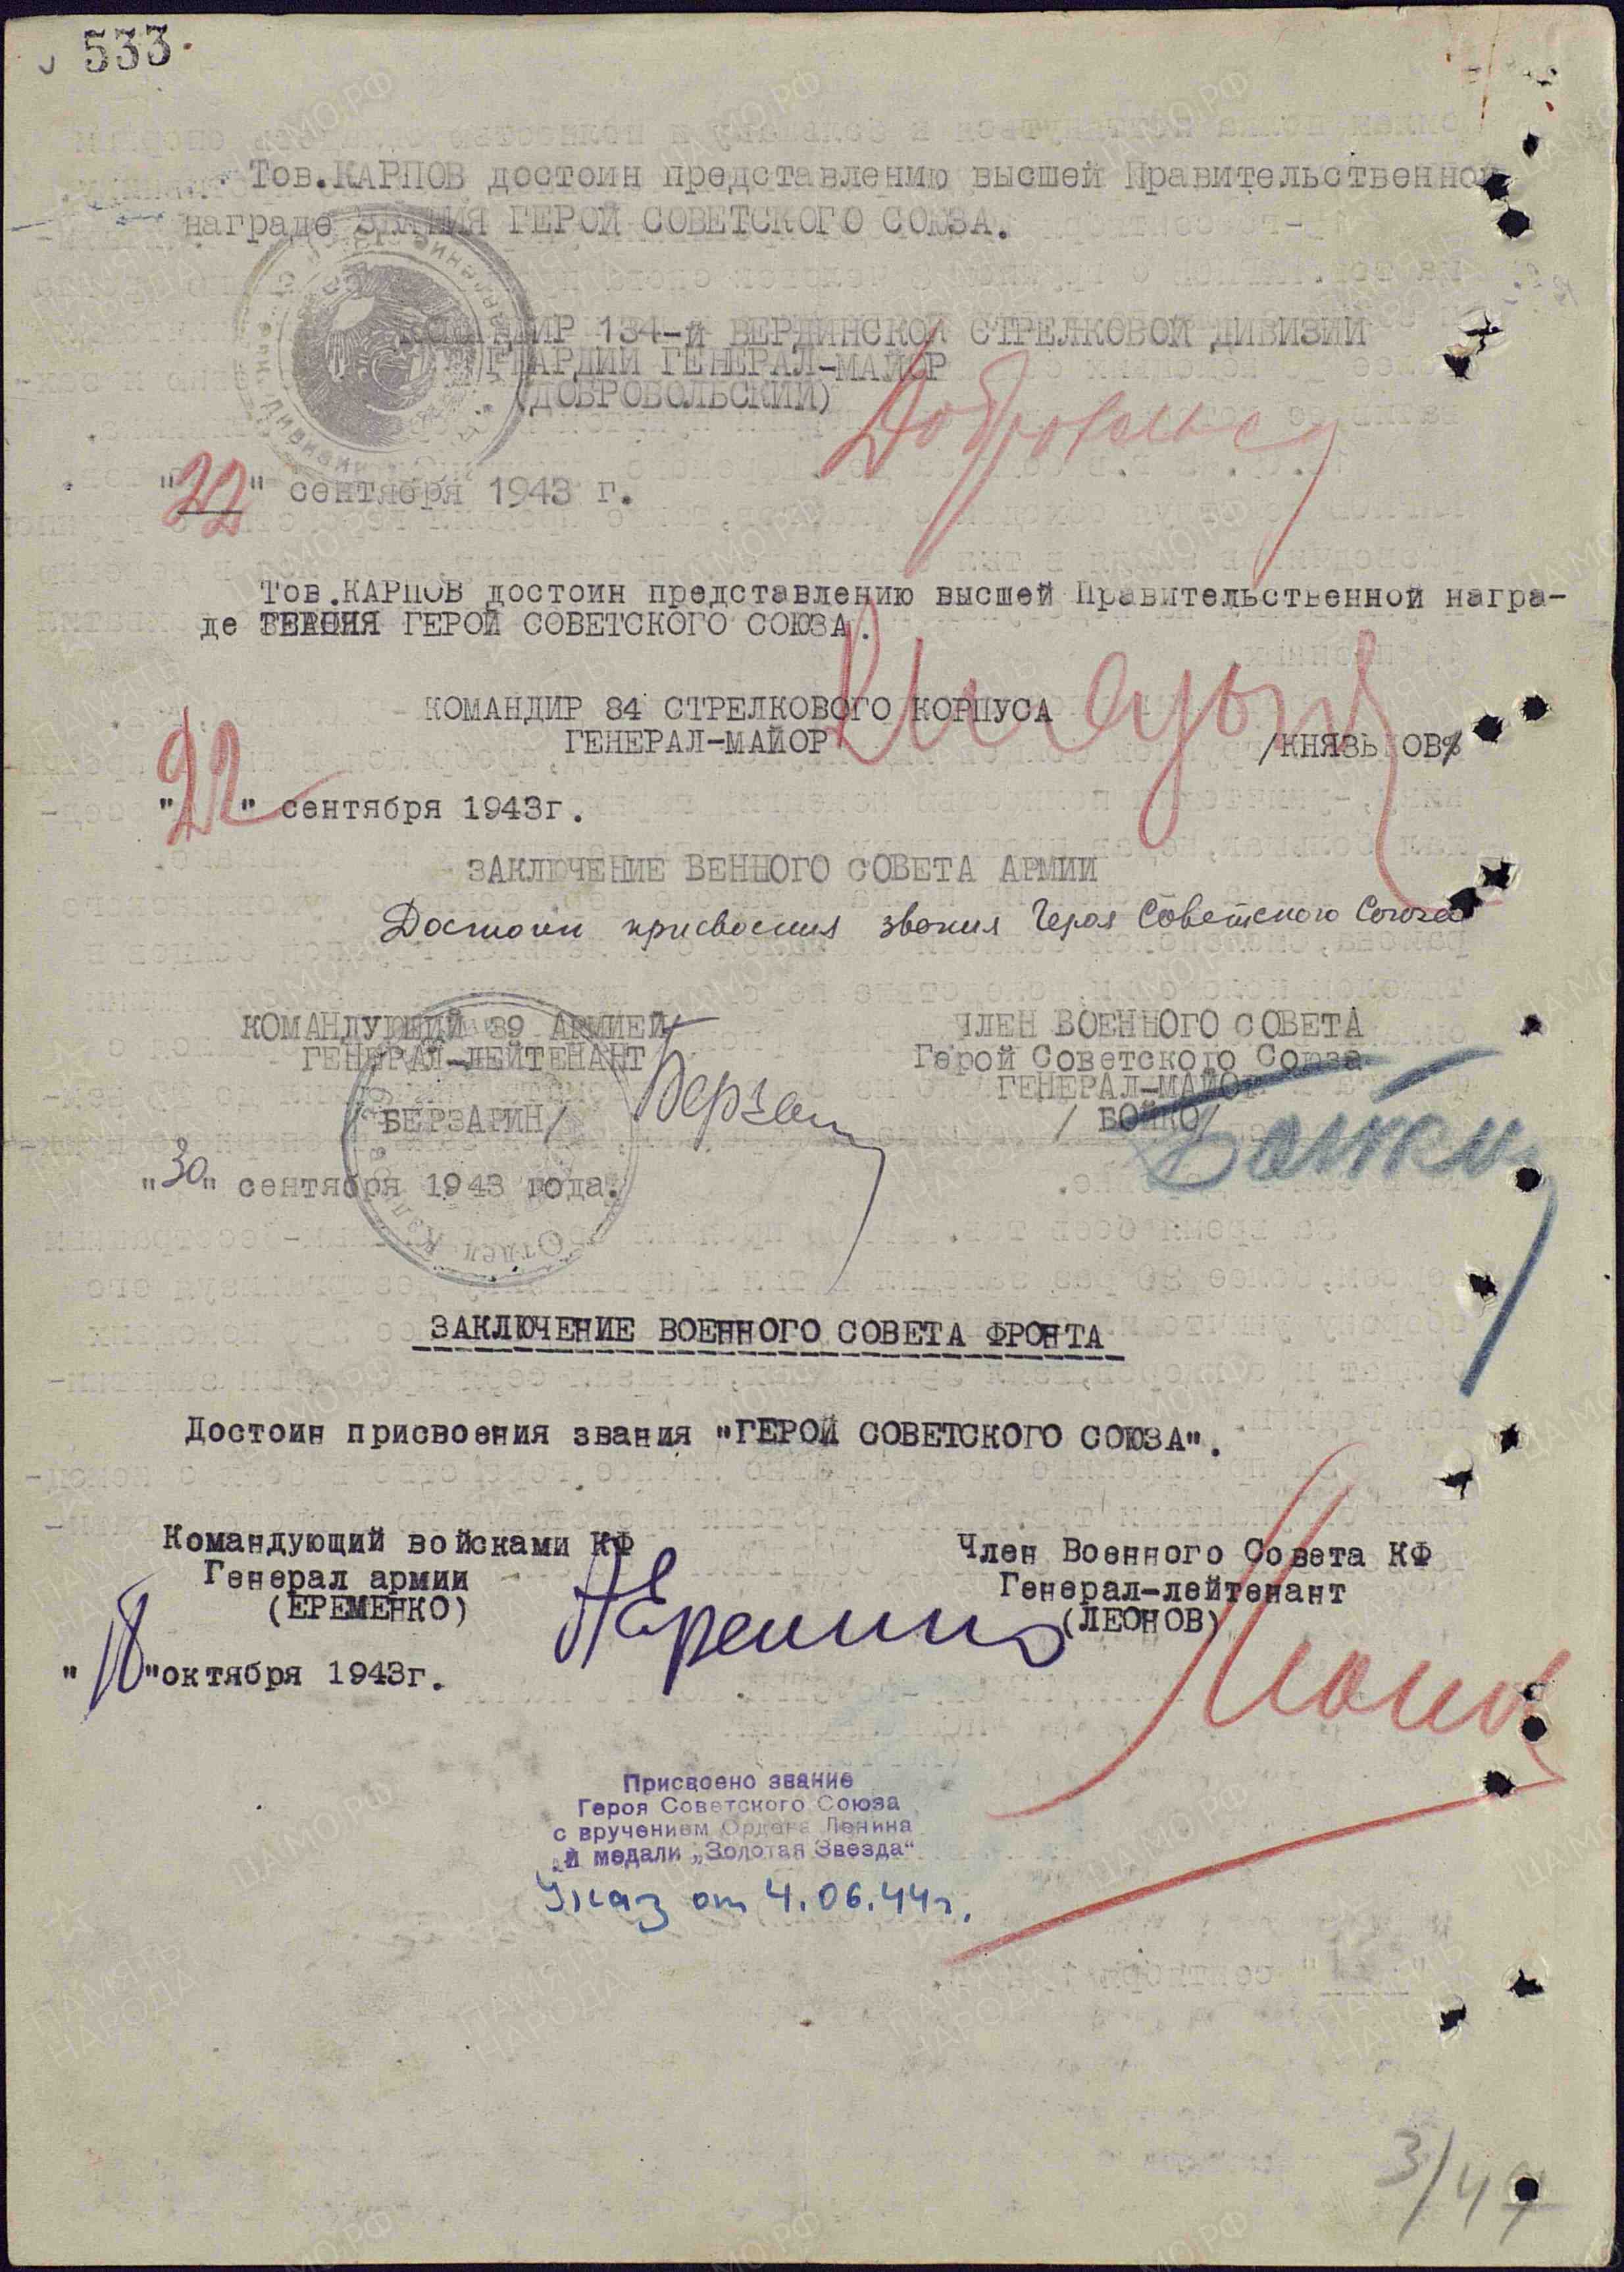 533
Тов.КАРПОВ достоин представлению высшей Правительственной
награде ЗВАНИЯ ГЕРОЙ СОВЕТСКОГО СОЮЗА.
КОМАНДИР 134-й ВЕРДИНСКОЙ СТРЕЛКОВОЙ ДИВИЗИИ
ГВАРДИИ ГЕНЕРАЛ-МАЙОР
(ДОБРОВОЛЬСКИЙ)
"22" сентября 1943 г.
Тов.КАРПОВ достоин представлению высшей Правительственной награ-
де ЗВАНИЯ ГЕРОЙ СОВЕТСКОГО СОЮЗА.
КОМАНДИР 84 СТРЕЛКОВОГО КОРПУСА
ГЕНЕРАЛ-МАЙОР /КНЯЗЬКОВ/
"22" сентября 1943г.
ЗАКЛЮЧЕНИЕ ВЕННОГО СОВЕТА АРМИИ
Достоин присвоения звания Героя Советского Союза
КОМАНДУЮЩИЙ 39 АРМИЕЙ
ГЕНЕРАЛ-ЛЕЙТЕНАНТ
БЕРЗАРИН/
"30" сентября 1943 года.
ЧЛЕН ВОЕННОГО СОВЕТА
Герой Советского Союза
ГЕНЕРАЛ-МАЙОР
/ БОЙКО/
ЗАКЛЮЧЕНИЕ ВОЕННОГО СОВЕТА ФРОНТА
Достоин присвоения звания "ГЕРОЙ СОВЕТСКОГО СОЮЗА".
Командующий войсками КФ
Генерал армии
(ЕРЕМЕНКО)
"18"октября 1943г.
Член Военного Совета КФ
Генерал-лейтенант
(ЛЕОНОВ)
Присвоено звание
Героя Советского Союза
с вручением Ордена Ленина
и медали „Золотая Звезда"
Указ от 4.06.44г.